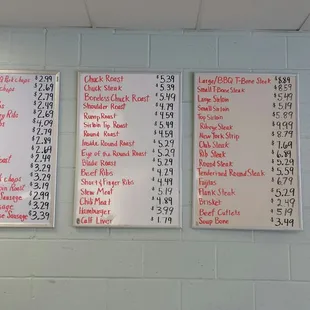 $2.99
chops $2.69
$2.79
$2.69
Ribs $2.99
$4.09
$2.79
$2.89
$2.99
$2.49
$3.19
$3.29
Roast $3.19
Sausage $2.99
$3.29
Sausage $3.39
Chuck Roast $5.39
Chuck Steak $5.39
Boneless Chuck Roast $5.49
Shoulder Roast $4.79
Rump Roast $4.59
Sirloin Tip Roast $5.49
Round Roast $4.59
Inside Round Roast $5.29
Eye of the Round Roast $5.29
Blade Roast $5.29
Beef Ribs $4.29
Short/Finger Ribs $4.49
Stew Meat $5.19
Chili Meat $4.89
Hamburger $3.99
Calf Liver $1.79
Large/BBQ T-Bone Steak $8.89
Small T-Bone Steak $8.59
Large Sirloin $5.49
Small Sirloin $5.19
Top Sirloin $5.89
Ribeye Steak $9.99
New York Strip $8.79
Club Steak $7.69
Rib Steak $6.89
Round Steak $5.29
Tenderized Round Steak $5.59
Fajitas $6.79
Flank Steak $5.29
Brisket $2.49
Beef Cutlets $5.19
Soup Bone $3.49